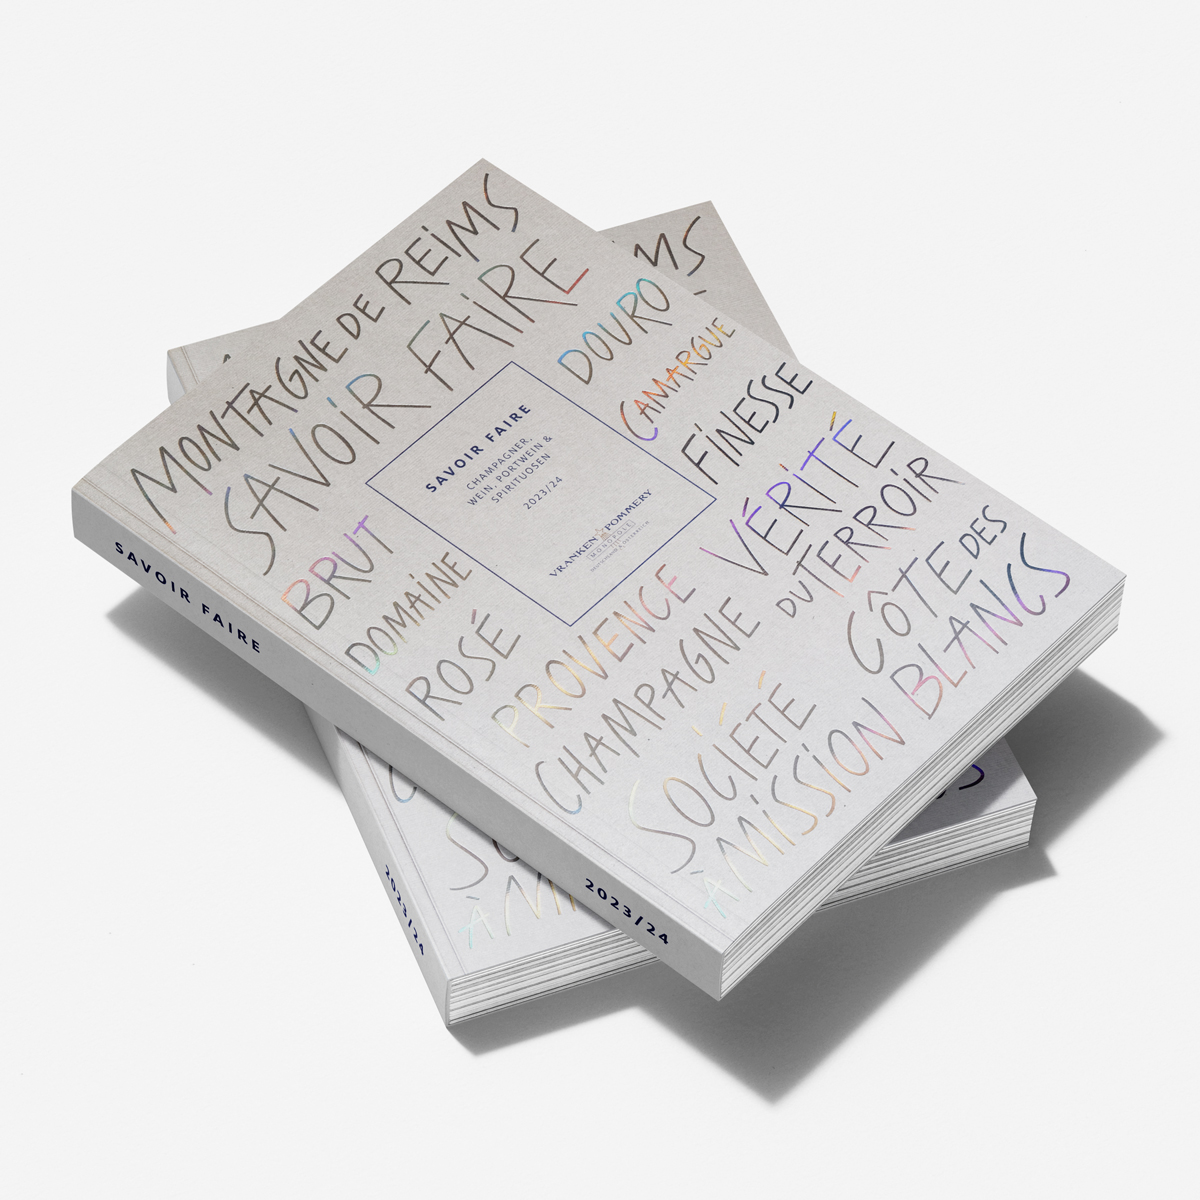 MONTAGNE DE REIMS
SAVOIR FAIRE
DOURO
CAMARGUE
FINESSE
SAVOIR FAIRE
CHAMPAGNER,
WEIN, PORTWEIN &
SPIRITUOSEN
2023/24
VRANKEN POMMERY
MONOPOLE
BRUT
DOMAINE
ROSÉ
VÉRITÉ
DU TERROIR
PROVENCE
CHAMPAGNE
CÔTE DES
BLANCS
SOCIÉTÉ
À MISSION
SAVOIR FAIRE
2023/24
MS
À MI
2023/24